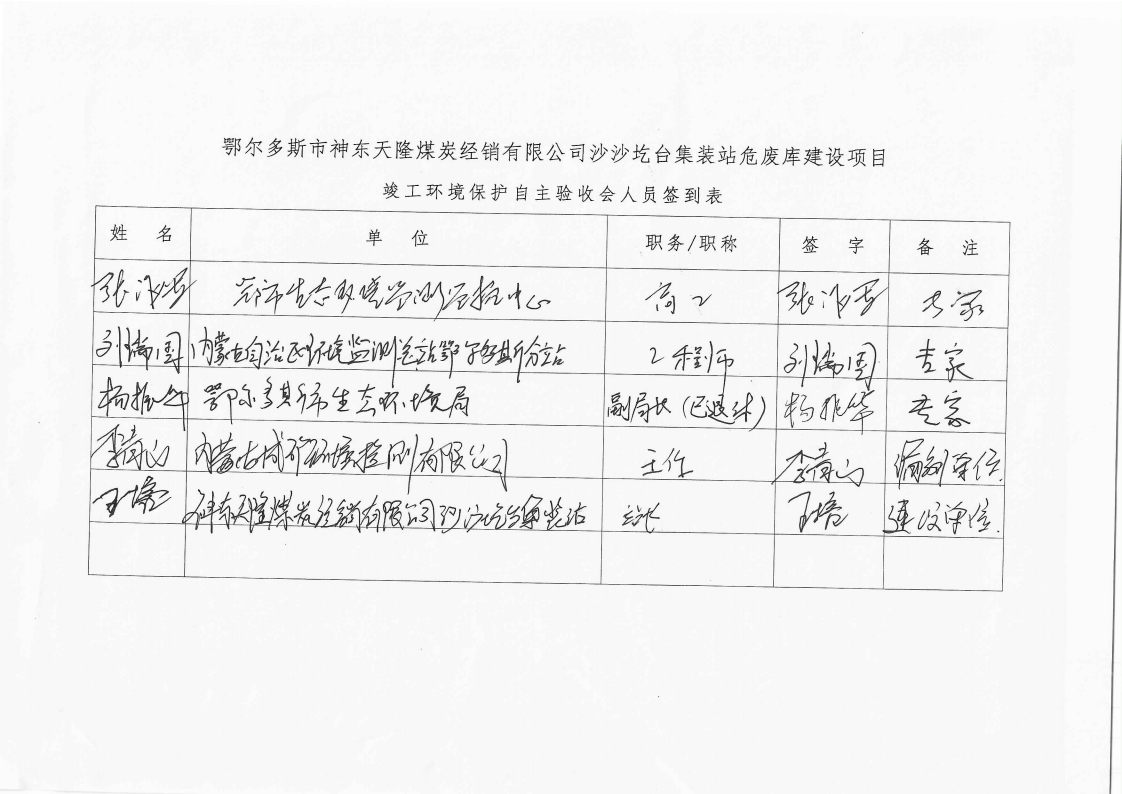 鄂尔多斯市神东天隆煤炭经销有限公司沙沙圪台集装站危废库建设项目
竣工环境保护自主验收会人员签到表
姓 名 单 位 职务/职称 签 字 备 注
张 市生态环境监测 中心 高工 张 专家
刘瑞国 内蒙古自治区环境监测总站鄂尔多斯分站 工程师 刘瑞国 专家
杨振华 鄂尔多斯市生态环境局 副局长（已退休） 杨振华 专家
李青山 内蒙古 矿环境检测有限公司 主任 李青山 编制单位
王培 神东天隆煤炭经销有限公司沙沙圪台集装站 站长 王培 建设单位